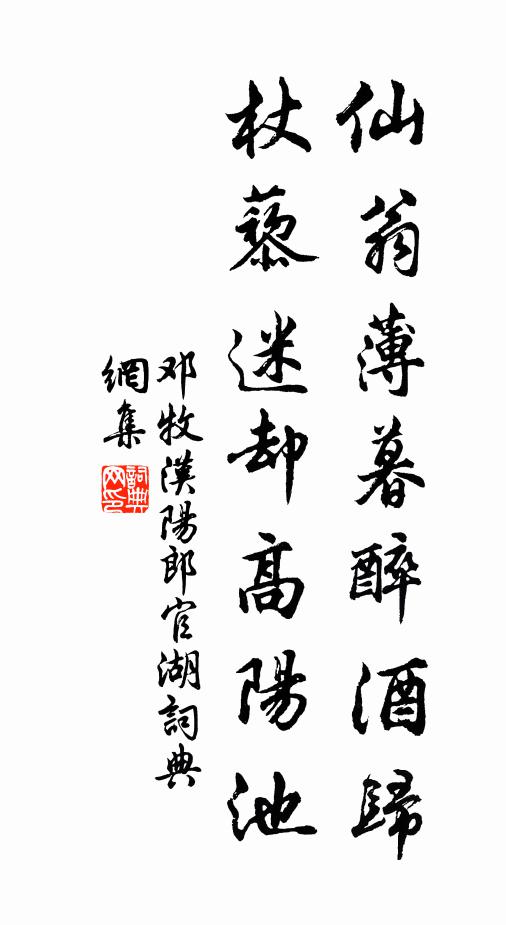 仙翁薄暮醉酒歸
杖藜迷却高陽池
邓牧漢陽郎官湖詞典
網集
詞典
網印